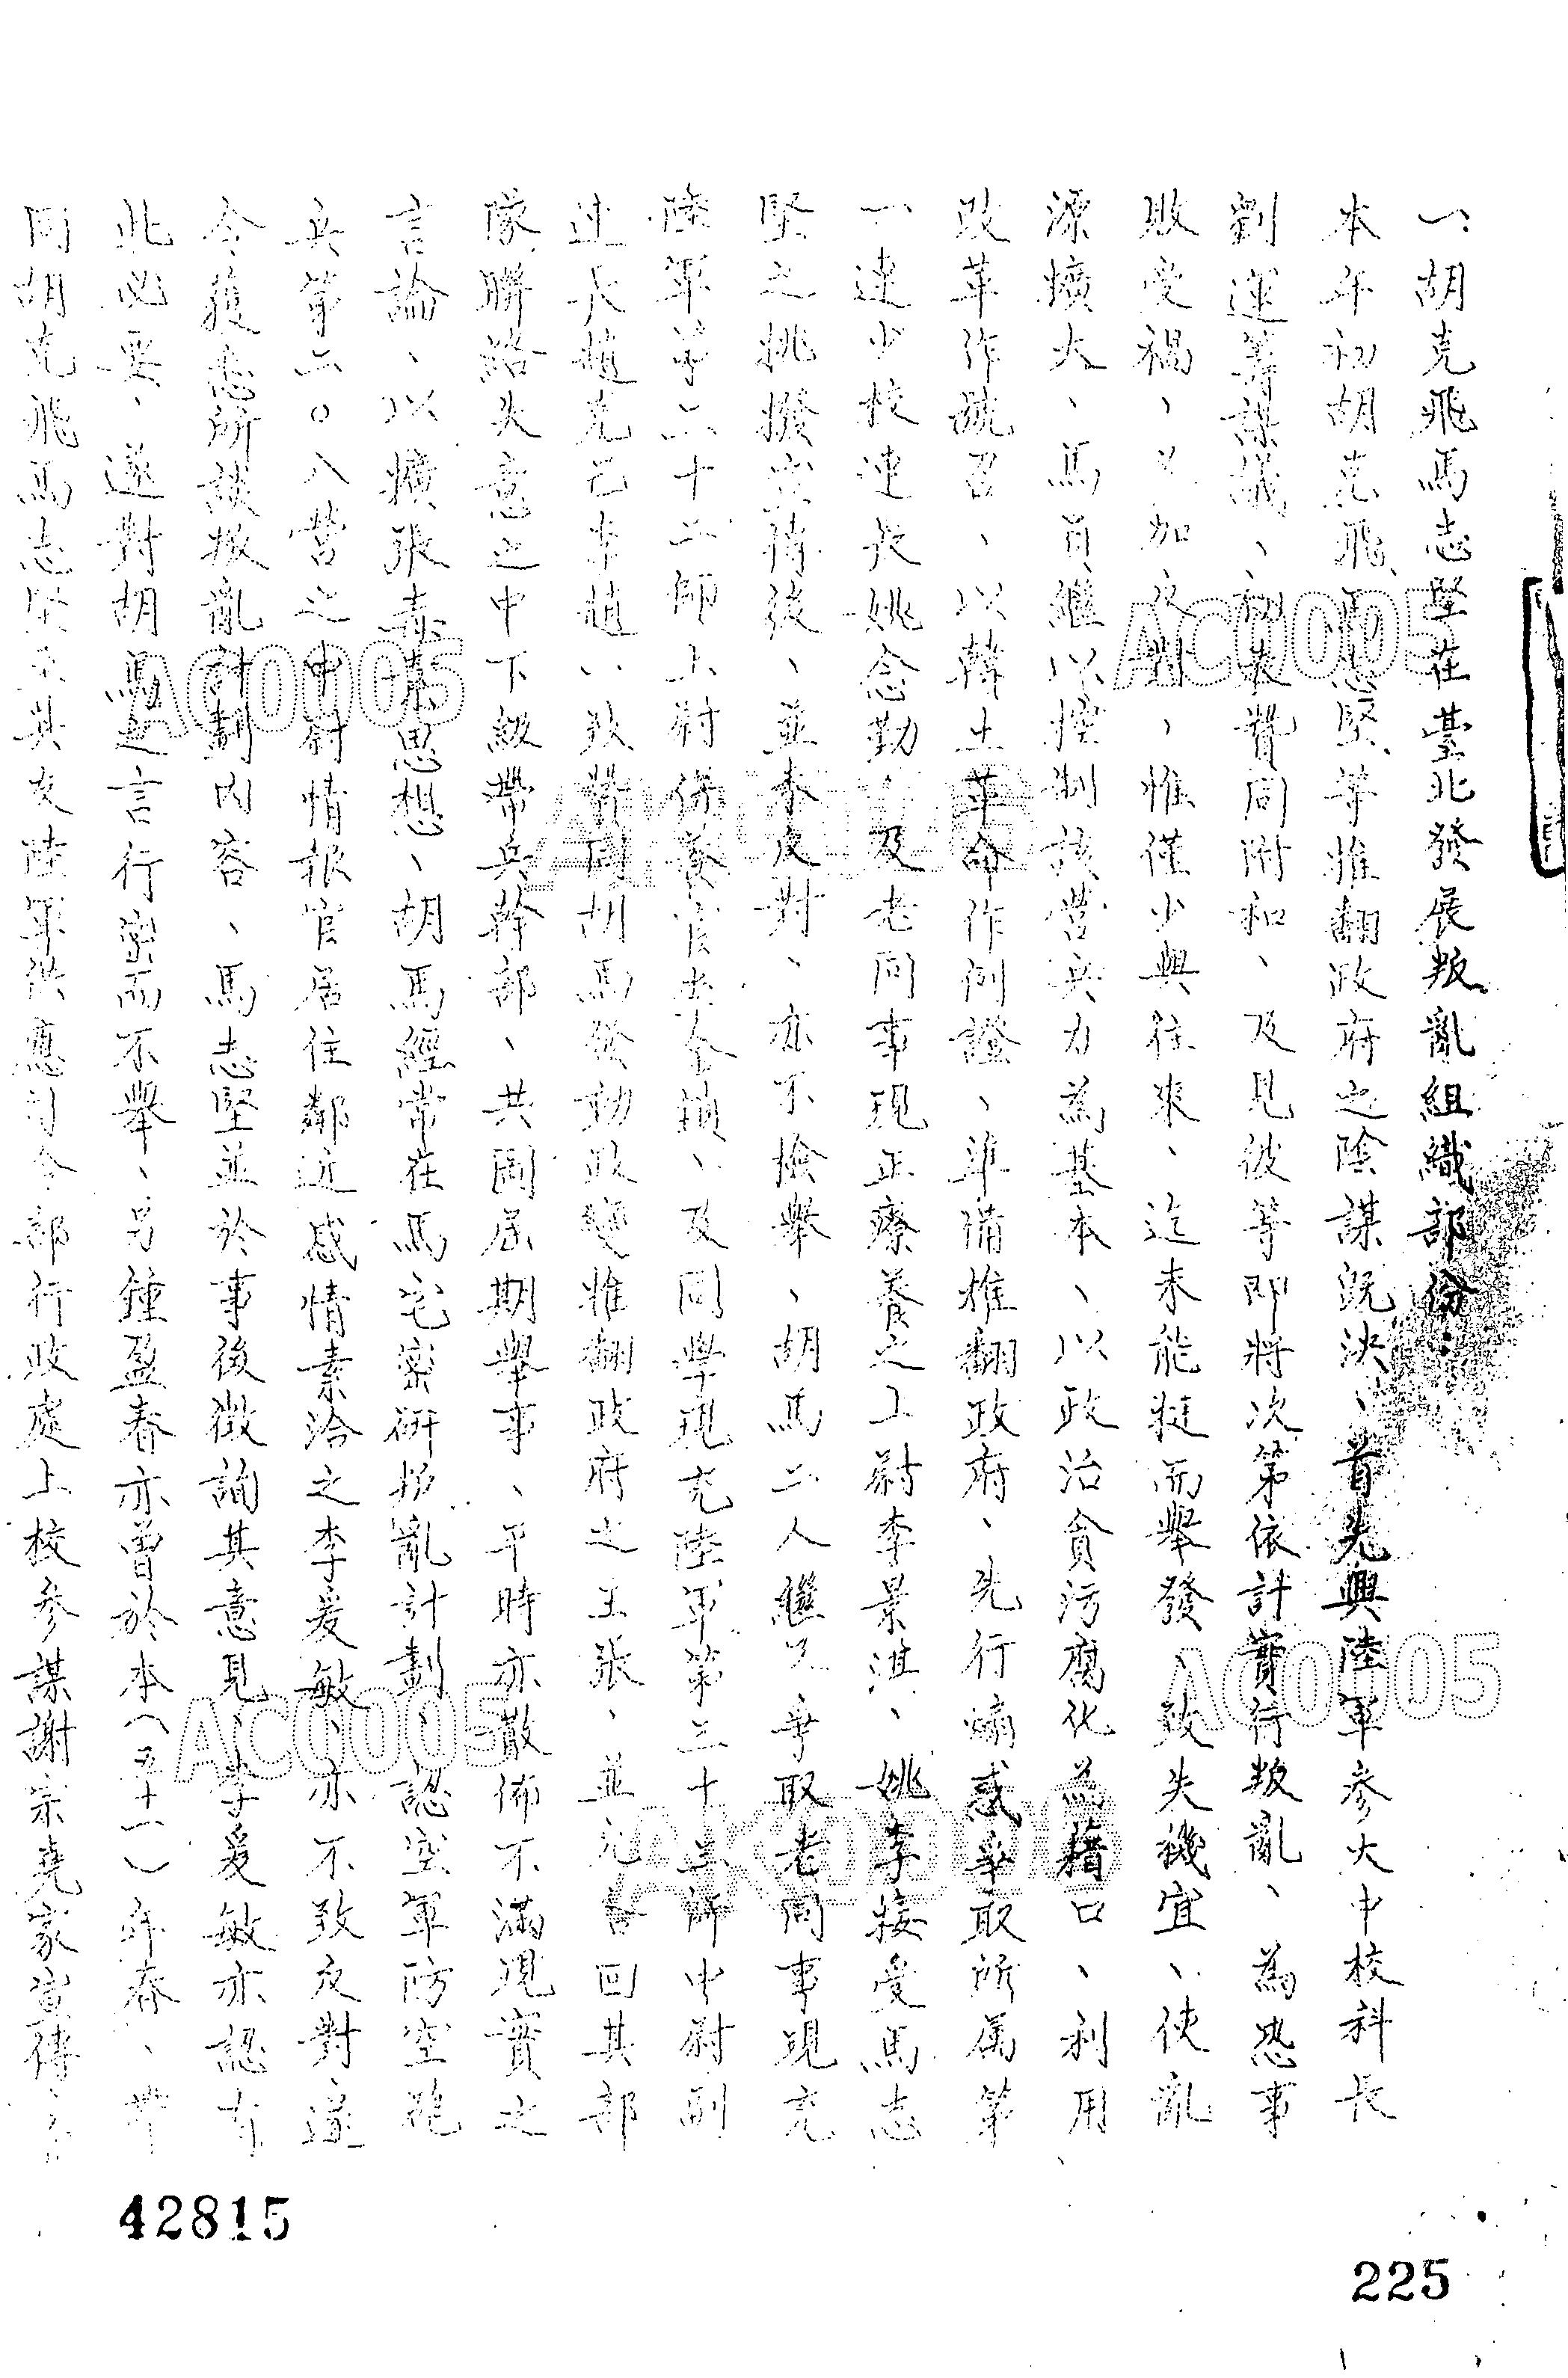 一、胡克飛馬志堅在臺北發展叛亂組織部份：
本年初胡克飛馬志堅等推翻政府之陰謀既決、首先與陸軍參大中校科長
劉運籌謀議、初表贊同附和、及見彼等即將次第依計實行叛亂、為恐事
敗受禍、又加 、惟僅少與往來、迄未能挺而舉發、致失機宜、使亂
源擴大、馬員繼以控制該營兵力為基本、以政治貪污腐化為藉口、利用
改革作號召、以韓土革命作例證、準備推翻政府、先行煽惑爭取所屬第
一連少校連長姚念勤、及老同事現正療養之上尉李景淇、姚李接受馬志
堅之挑撥 後、並未反對、亦不檢舉、胡馬二人繼又爭取老同事現充
陸軍第二十二師上尉保養官 、及同學現充陸軍第三十三師中尉副
連長趙克 李趙 同胡馬發動政變推翻政府之主張、並允 回其部
隊聯絡失意之中下級帶兵幹部、共圖屆期舉事、平時亦散佈不滿現實之
言論、以擴張毒素思想、胡馬經常在馬宅密研叛亂計劃、認空軍防空砲
兵第二〇八營之中尉情報官居住鄰近感情素洽之李爰敏、亦不致反對遂
令獲悉所謀叛亂計劃內容、馬志堅並於事後徵詢其意見、李爰敏亦認有
此必要、遂對胡馬之言行密而不舉、另鍾盈春亦曾於本（五十一）年春、帶
同胡克飛馬志堅至其友陸軍供應司令部行政處上校參謀謝宗堯家宣傳
AC0005
AC0005
AC0005
AC0005
42815
225